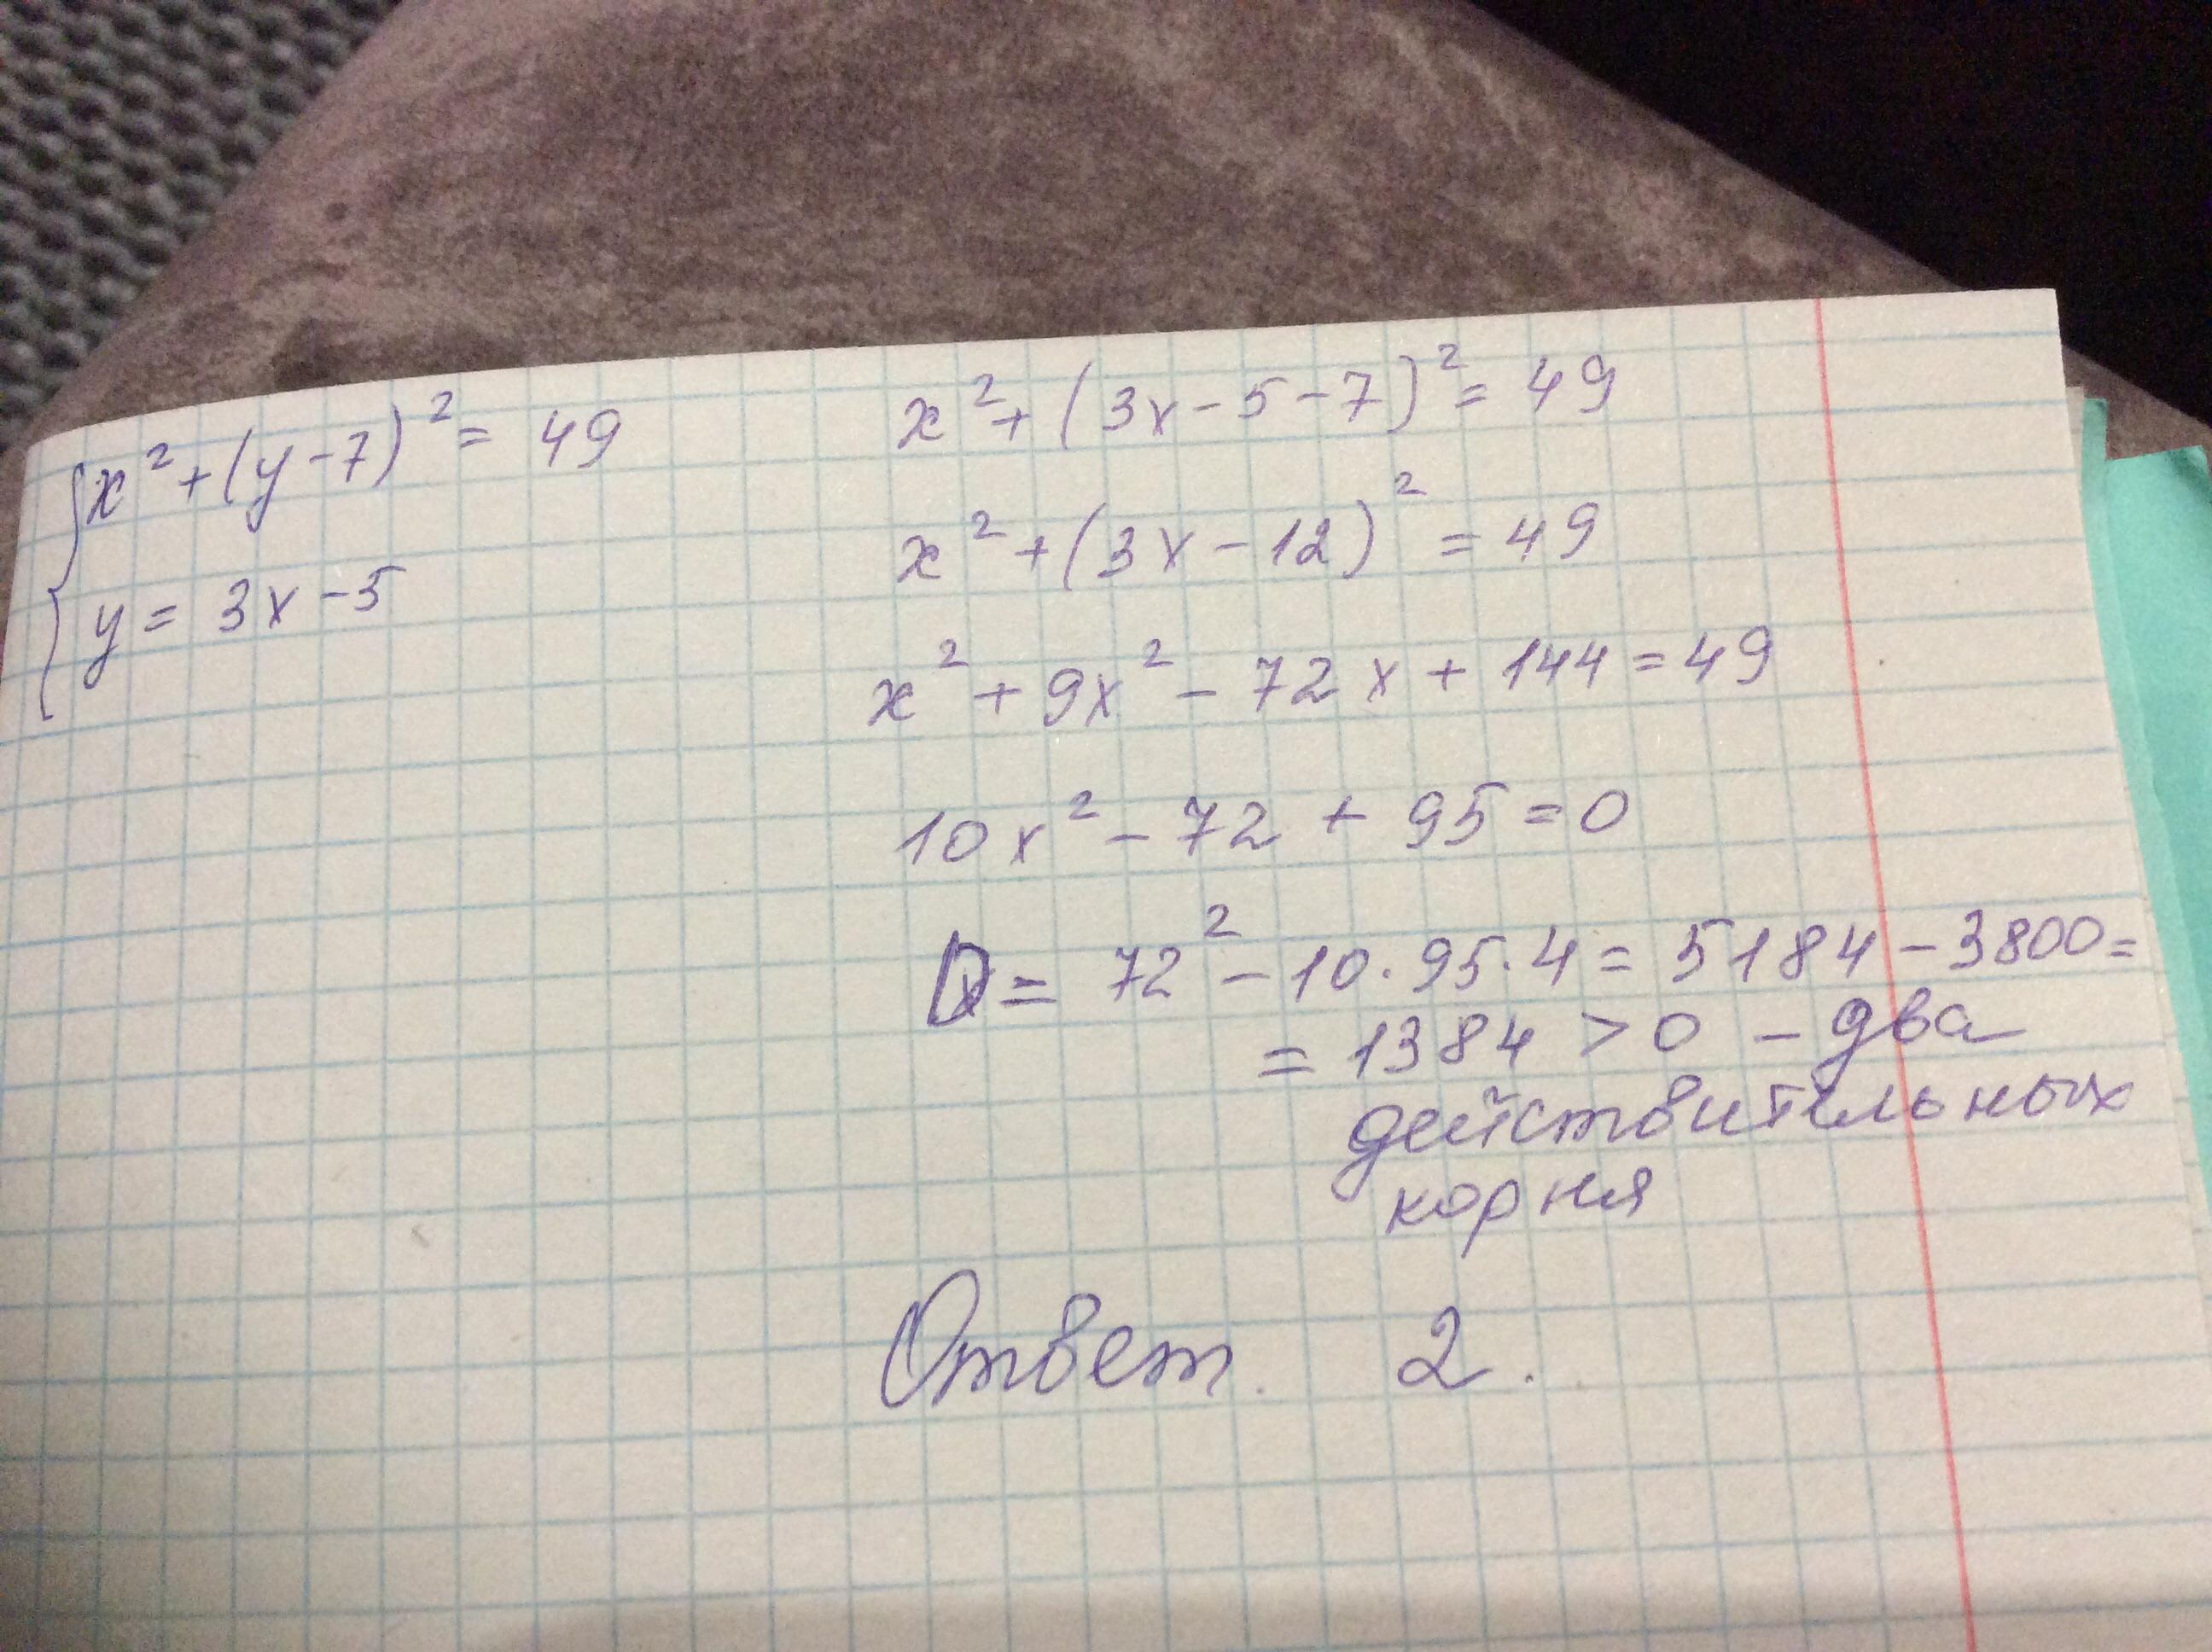 x² + (y - 7)² = 49
y = 3x - 5
x² + (3x - 5 - 7)² = 49
x² + (3x - 12)² = 49
x² + 9x² - 72x + 144 = 49
10x² - 72 + 95 = 0
D = 72² - 10 · 95 · 4 = 5184 - 3800 =
= 1384 > 0 - два
действительных
корня
Ответ. 2.